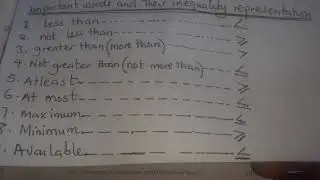 Important words and Their inequality representation
1. Less than ------------ <
2. not less than ------------ ≥
3. greater than (more than) ------------ >
4. Not greater than (not more than) ------ ≤
5. Atleast ------------ ≥
6. At most ------------ ≤
7. Maximum ------------ ≤
8. Minimum ------------ ≥
. Available ------------ ≤